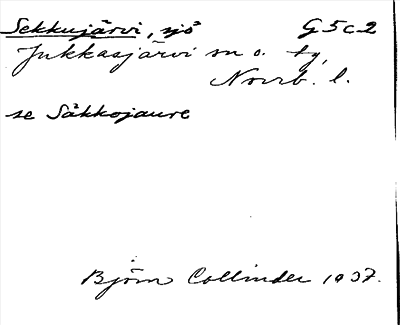 Sekkujärvi, sjö G5c2
Jukkasjärvi sn o. tg,
Norrb. l.
se Säkkojaure
Björn Collinder 1937.